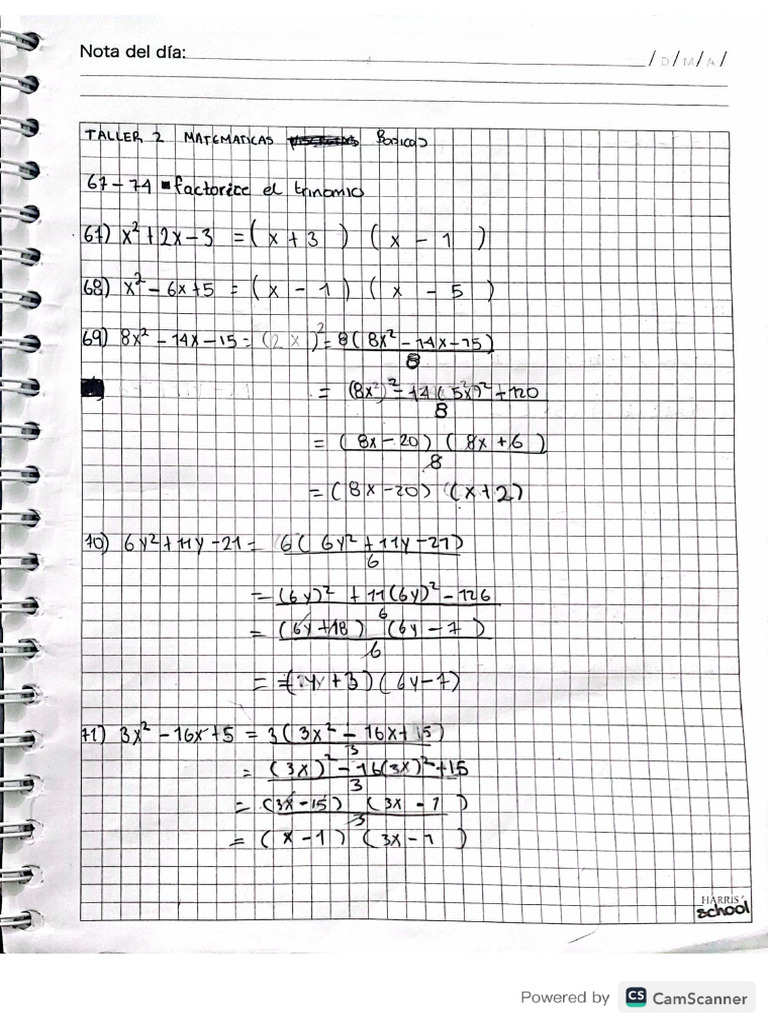 Nota del día: /D/M/A/
TALLER 2 MATEMATICAS Basicas
67-74 factorice el trinomio
67) x²+2x-3 = (x+3) (x-1)
68) x²-6x+5 = (x-1) (x-5)
69) 8x²-14x-15 = (2x)² = 8(8x²-14x-15)
8
= (8x²)²-14(5²x)²+120
8
= (8x-20) (8x+6)
8
= (8x-20) (x+2)
70) 6y²+11y-21 = 6(6y²+11y-21)
6
= (6y)²+11(6y)²-126
6
= (6y+18) (6y-7)
6
= (y+3)(6y-7)
71) 3x²-16x+5 = 3(3x²-16x+15)
3
= (3x)²-16(3x)²+15
3
= (3x-15) (3x-1)
3
= (x-1) (3x-1)
HARRIS
school
Powered by CS CamScanner